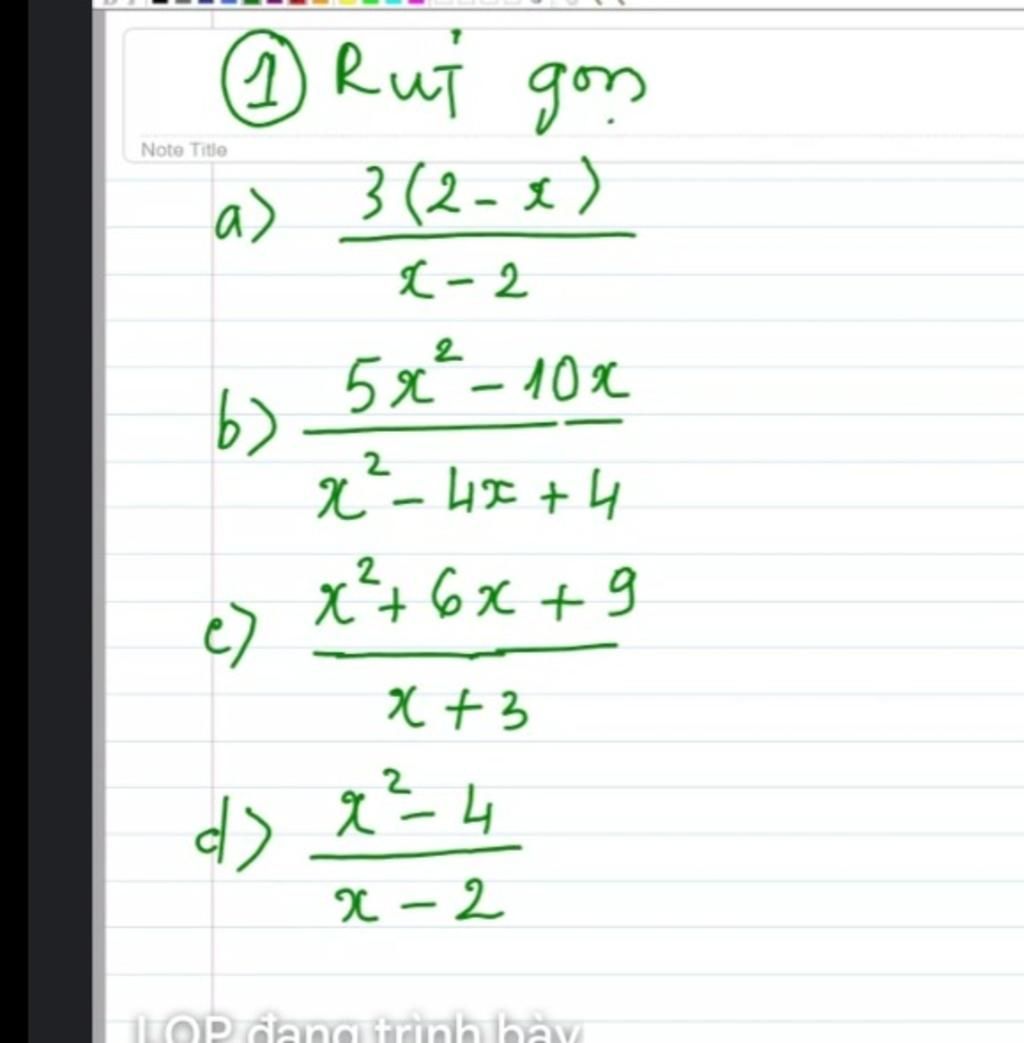 ① Rút gọn
Note Title
a) 3(2 - x) / x - 2
b) 5x² - 10x / x² - 4x + 4
c) x² + 6x + 9 / x + 3
d) x² - 4 / x - 2
LOP đang trình bày